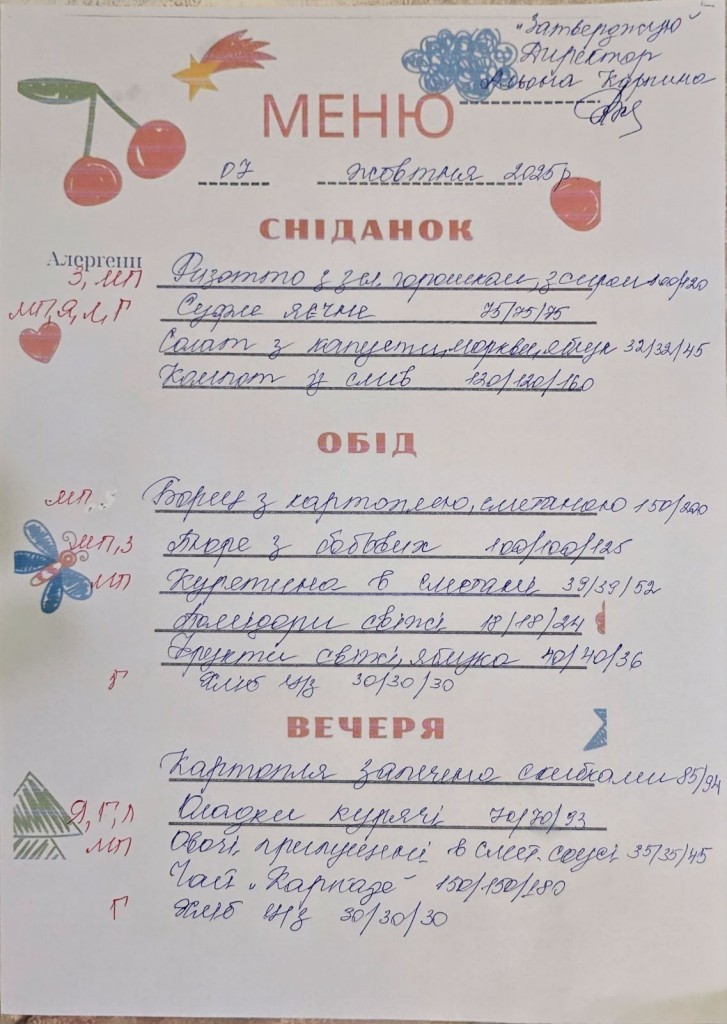 "Затверджую"
Директор
Альона Курпина
МЕНЮ
07 жовтня 2025р.
СНІДАНОК
Алергени
З, МП Ризотто з зел. горошком, з сиром 100/120
МП, Я, Л, Г Суфле яєчне 75/75/75
Салат з капусти, моркви, яблук 32/32/45
Компот із слив 120/120/160
ОБІД
МП, Борщ з картоплею, сметаною 150/200
МП, З Пюре з бобових 100/100/125
МП Курятина в сметані 39/39/52
Помідори свіжі 18/18/24
Фрукти свіжі, яблука 40/40/36
Г Хліб ц/з 30/30/30
ВЕЧЕРЯ
Картопля запечена скибками 85/94
Я, Г, Л Оладки курячі 70/70/93
МП Овочі припущені в смет. соусі 35/35/45
Чай "Каркаде" 150/150/180
Г Хліб ц/з 30/30/30